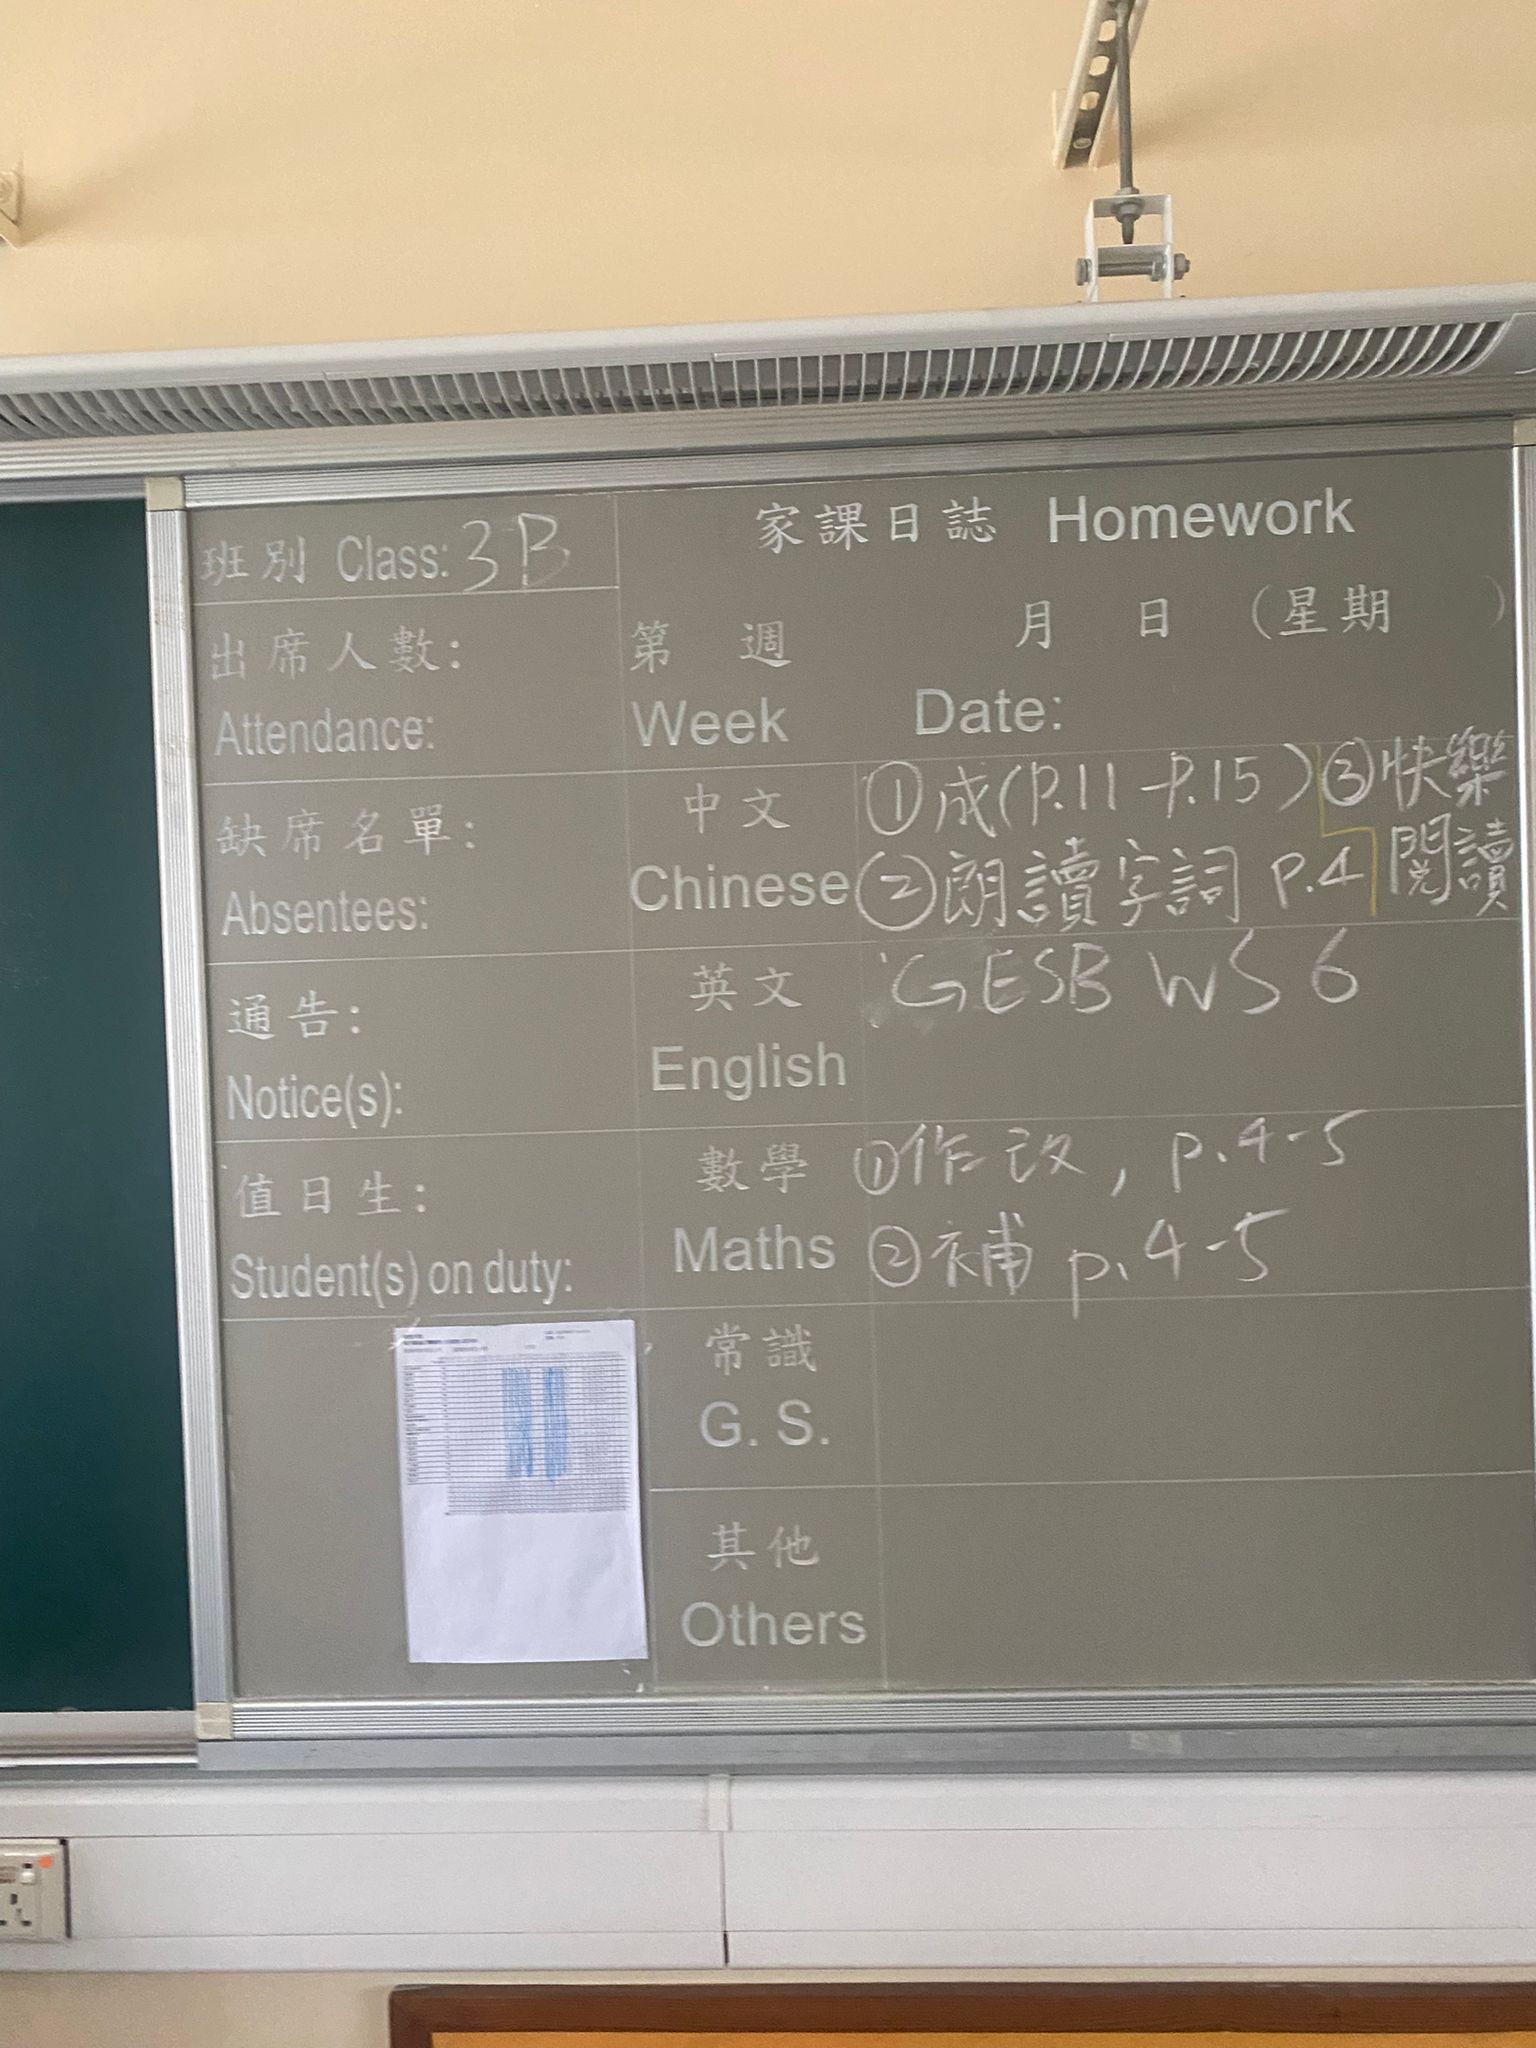 班別 Class: 3B
出席人數:
Attendance:
缺席名單:
Absentees:
通告:
Notice(s):
值日生:
Student(s) on duty:
家課日誌 Homework
第 週 月 日 (星期 )
Week Date:
中文
Chinese
①成(P.11-P.15) ③快樂
②朗讀字詞 P.4 閱讀
英文
English
GESB WS 6
數學
Maths
①作改, p.4-5
②補 p.4-5
常識
G. S.
其他
Others